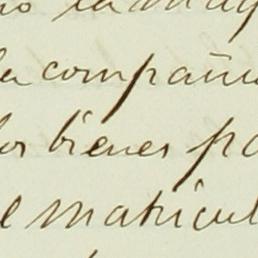 la compañia
los bienes pa
el matricul